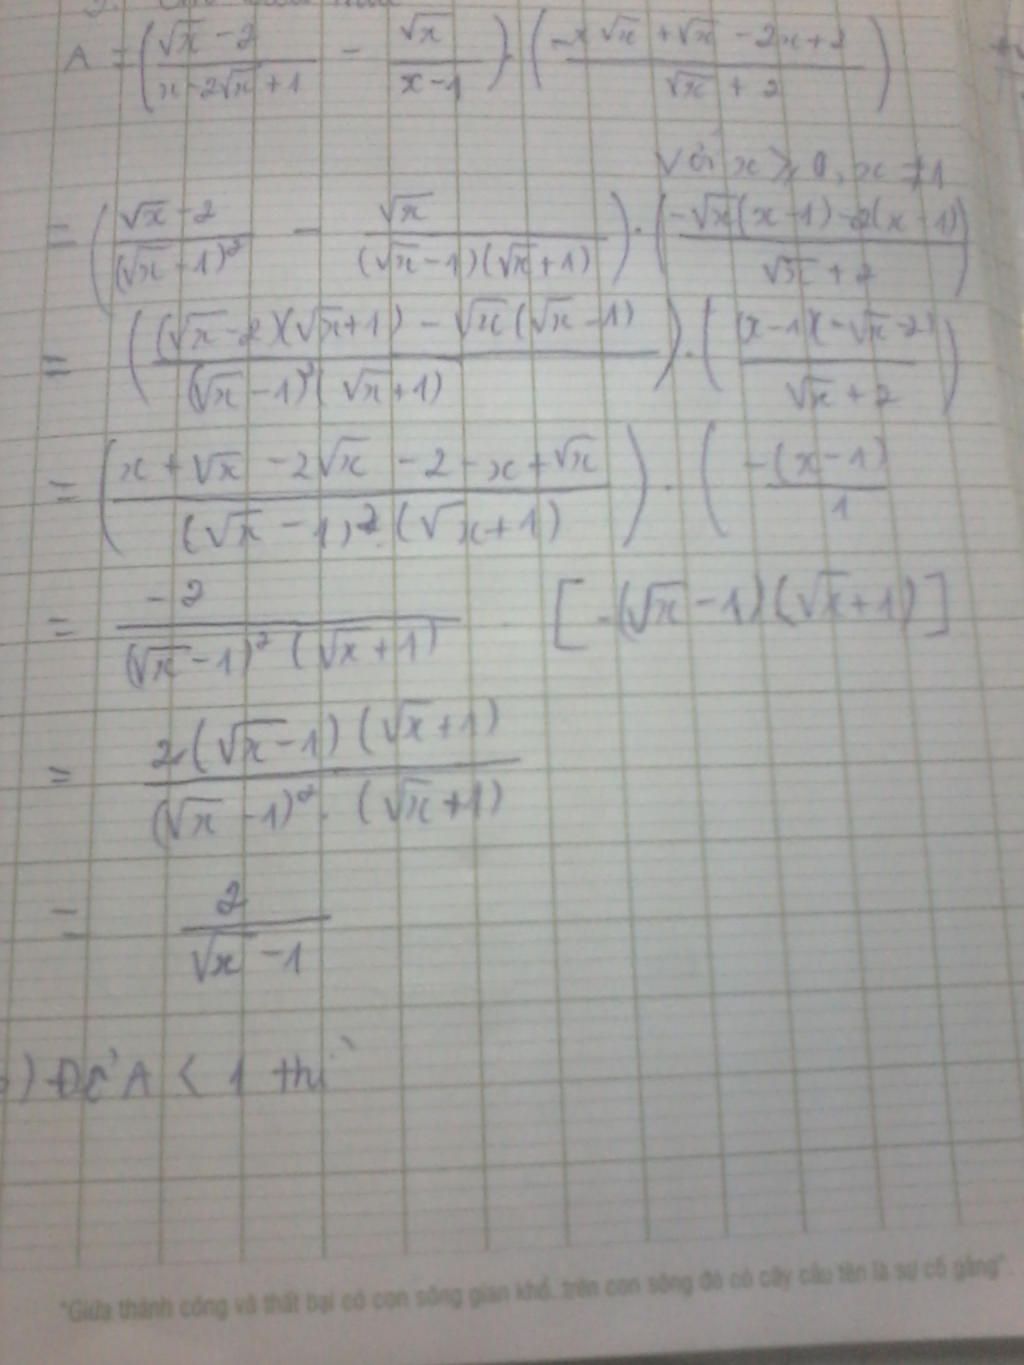 A = ( (√x - 2)/(x - 2√x + 1) - √x/(x - 1) ) · ( (-x√x + √x - 2x + 2)/(√x + 2) )
Với x ≥ 0, x ≠ 1
= ( (√x - 2)/(√x - 1)² - √x/((√x - 1)(√x + 1)) ) · ( (-√x(x - 1) - 2(x - 1))/(√x + 2) )
= ( ((√x - 2)(√x + 1) - √x(√x - 1))/((√x - 1)²(√x + 1)) ) · ( ((x - 1)(-√x - 2))/(√x + 2) )
= ( (x + √x - 2√x - 2 - x + √x)/((√x - 1)².(√x + 1)) ) · ( (-(x - 1))/1
= (-2)/((√x - 1)²(√x + 1)) · [-(√x - 1)(√x + 1)]
= (2(√x - 1)(√x + 1))/((√x - 1)².(√x + 1))
= 2/(√x - 1)
) Để A < 1 thì
"Giữa thành công và thất bại có con sông gian khổ..trên con sông đó có cây cầu tên là sự cố gắng".